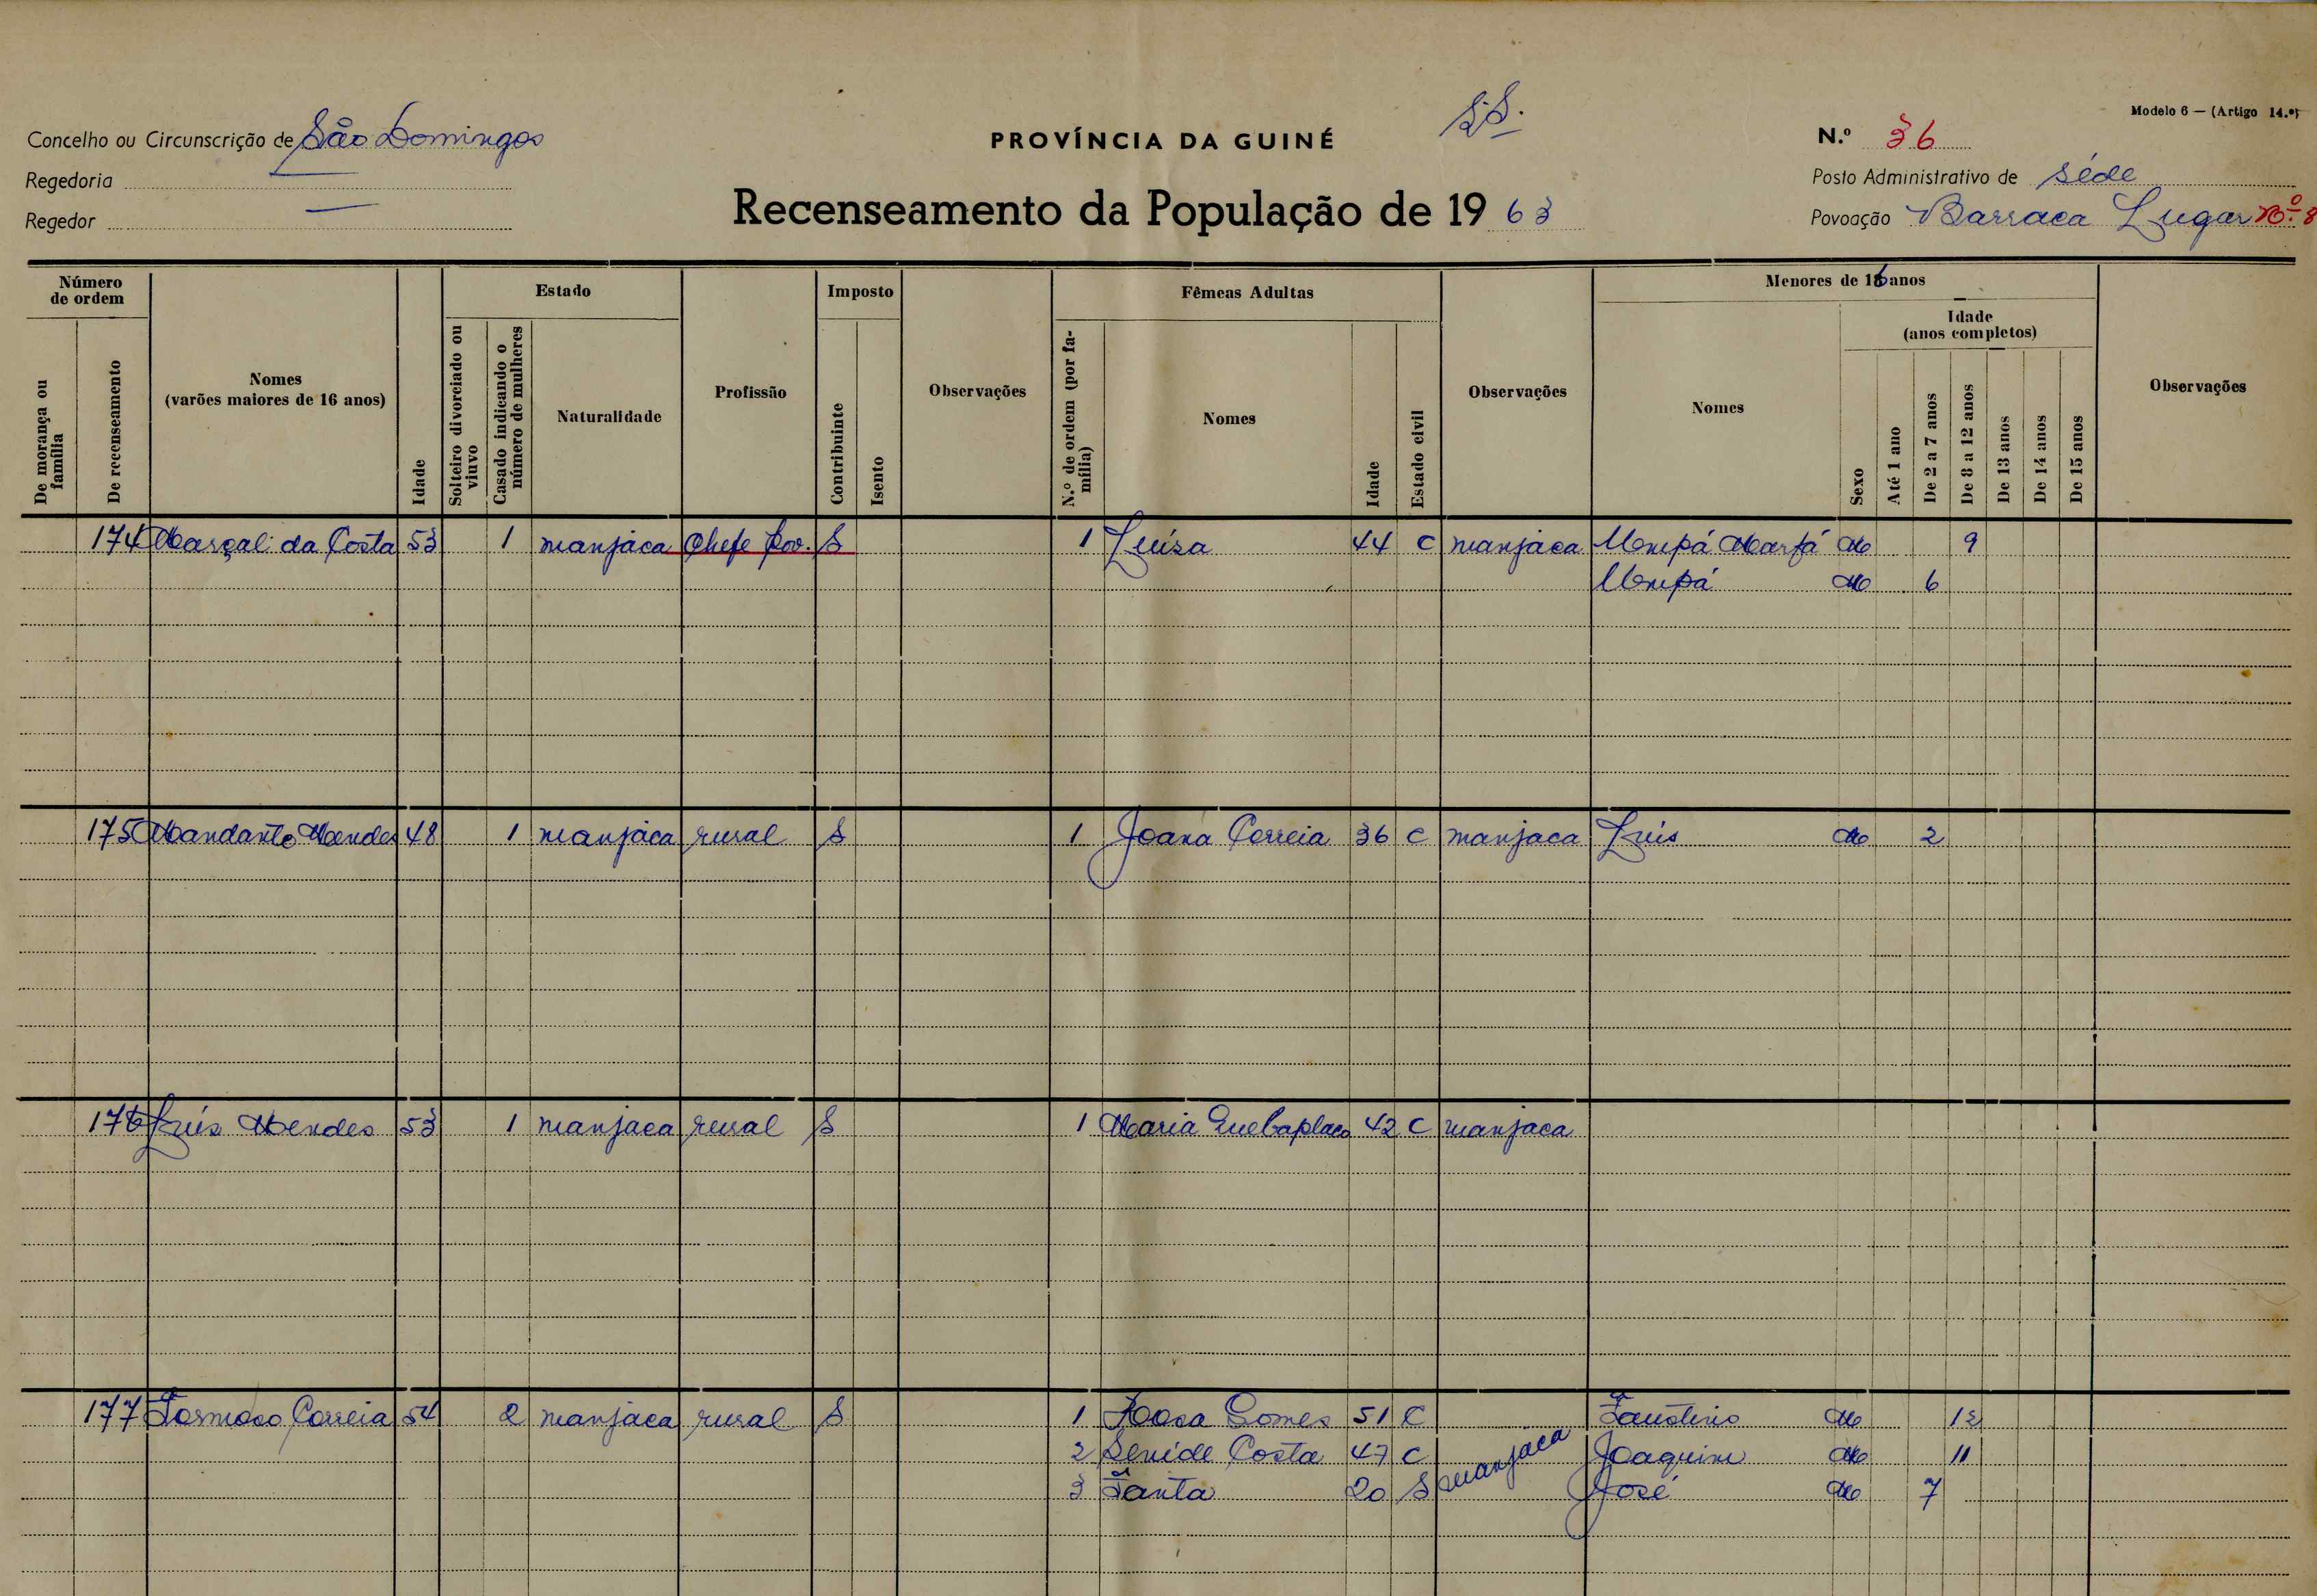 SS.
Modelo 6 — (Artigo 14.º)
Concelho ou Circunscrição de São Domingos
PROVÍNCIA DA GUINÉ
N.º 36
Regedoria —
Posto Administrativo de Séde
Regedor —
Recenseamento da População de 1963
Povoação Barraca Lugar Nº 8
Número de ordem
De morança ou família
De recenseamento
Nomes
(varões maiores de 16 anos)
Idade
Estado
Solteiro divorciado ou viuvo
Casado indicando o número de mulheres
Naturalidade
Profissão
Imposto
Contribuinte
Isento
Observações
Fêmeas Adultas
N.º de ordem (por família)
Nomes
Idade
Estado civil
Observações
Menores de 16 anos
Nomes
Sexo
Idade
(anos completos)
Até 1 ano
De 2 a 7 anos
De 8 a 12 anos
De 13 anos
De 14 anos
De 15 anos
Observações
174 Marçal da Costa 53 1 manjaca Chefe Pov. S 1 Luísa 44 C manjaca Unpá M 9
Unpá M 6
175 Mandante Mendes 48 1 manjaca rural S 1 Joana Correia 36 C manjaca Luis M 2
176 Luis Mendes 53 1 manjaca rural S 1 Maria 42 C manjaca
177 Formoso Correia 54 2 manjaca rural S 1 Rosa Gomes 51 C manjaca Faustino M 12
2 Costa 47 C Joaquim M 11
3 Fanta 20 S José M 7